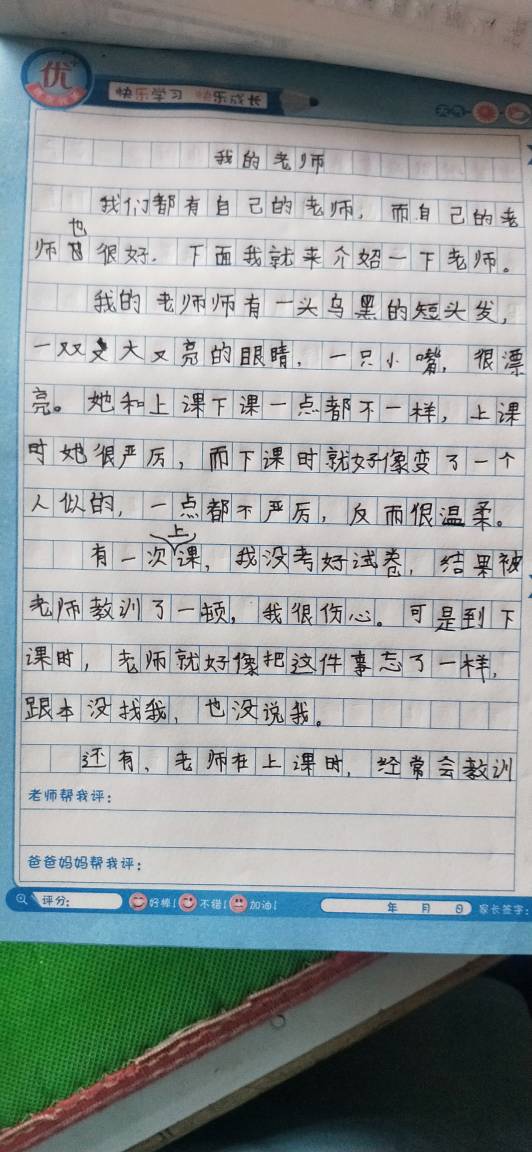 优
快乐学习 快乐成长
天气
我的老师
我们都有自己的老师，而自己的老
师也很好．下面我就来介绍一下老师。
我的老师师有一头乌黑的短头发，
一双又大又亮的眼睛，一只小嘴，很漂
亮。她和上课下课一点都不一样，上课
时她很严厉，而下课时就好像变了一个
人似的，一点都不严厉，反而很温柔。
有一次上课，我没考好试卷，结果被
老师教训了一顿，我很伤心。可是到下
课时，老师就好像把这件事忘了一样，
跟本没找我，也没说我。
还有、老师在上课时，经常会教训
老师帮我评：
爸爸妈妈帮我评：
评分： 好棒！ 不错！ 加油！ 年 月 日 家长签字：